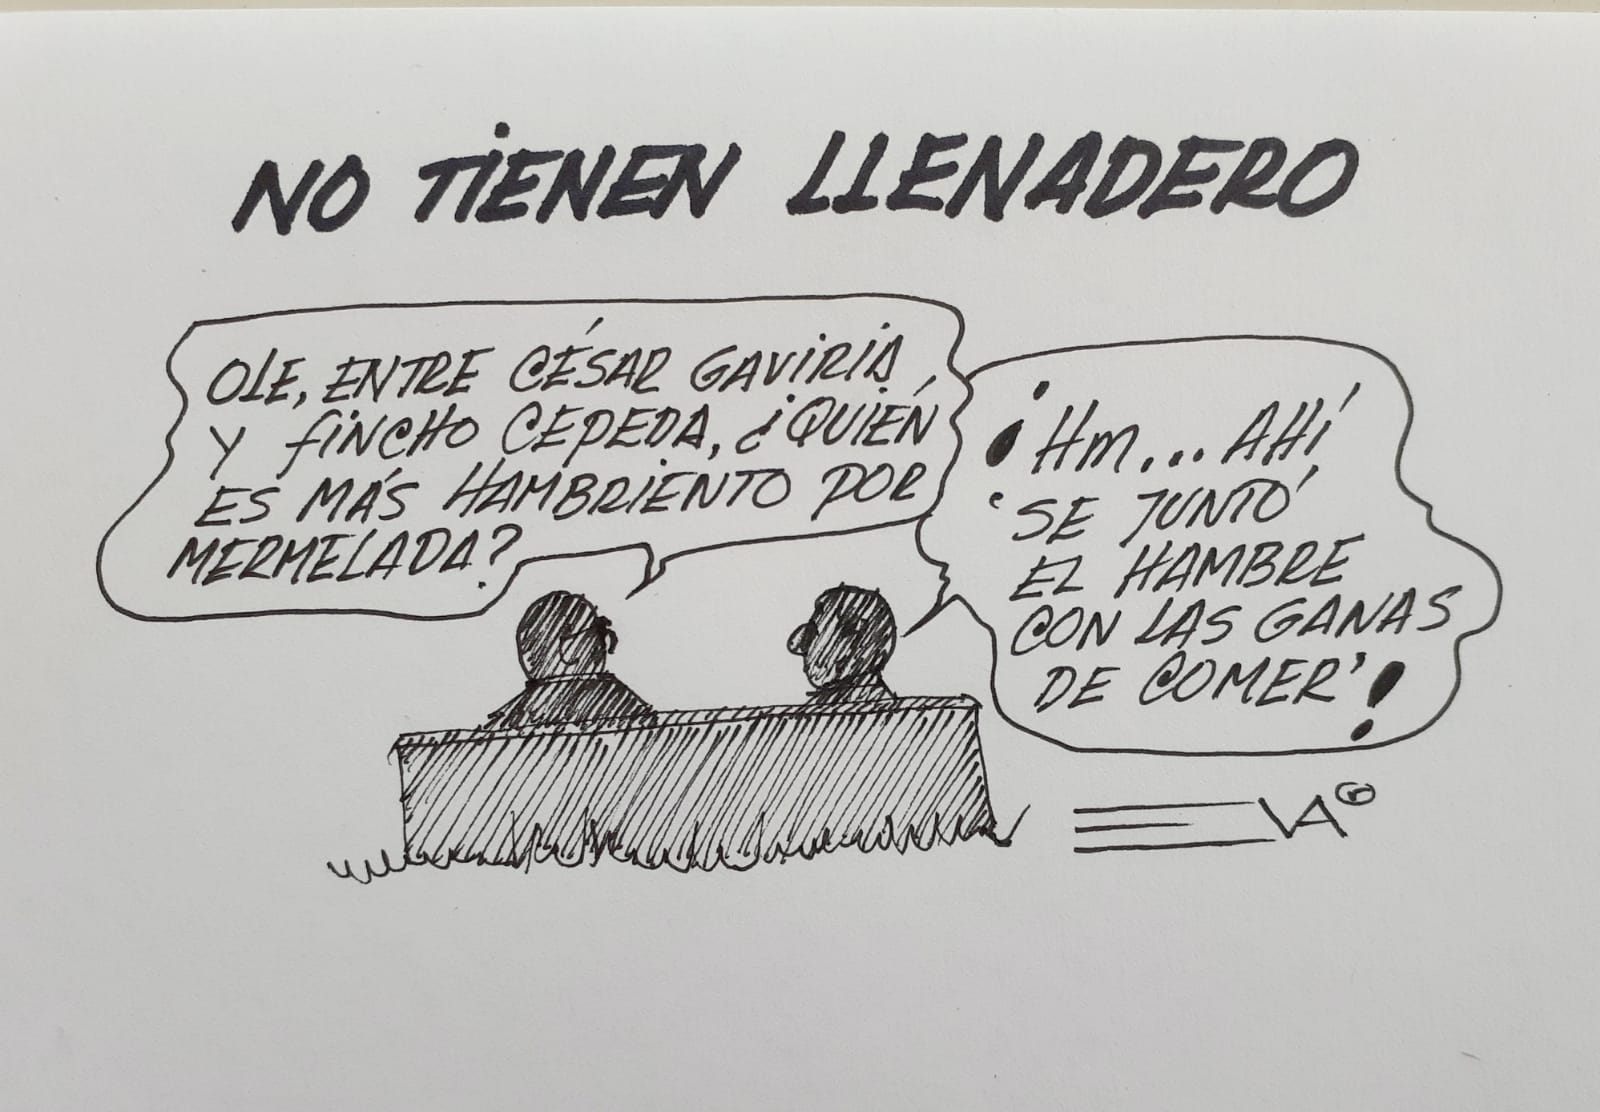 NO TIENEN LLENADERO
OLE, ENTRE CÉSAR GAVIRIA
Y FINCHO CEPEDA, ¿QUIÉN
ES MÁS HAMBRIENTO POR
MERMELADA?
¡HM... AHÍ
'SE JUNTÓ
EL HAMBRE
CON LAS GANAS
DE COMER'!